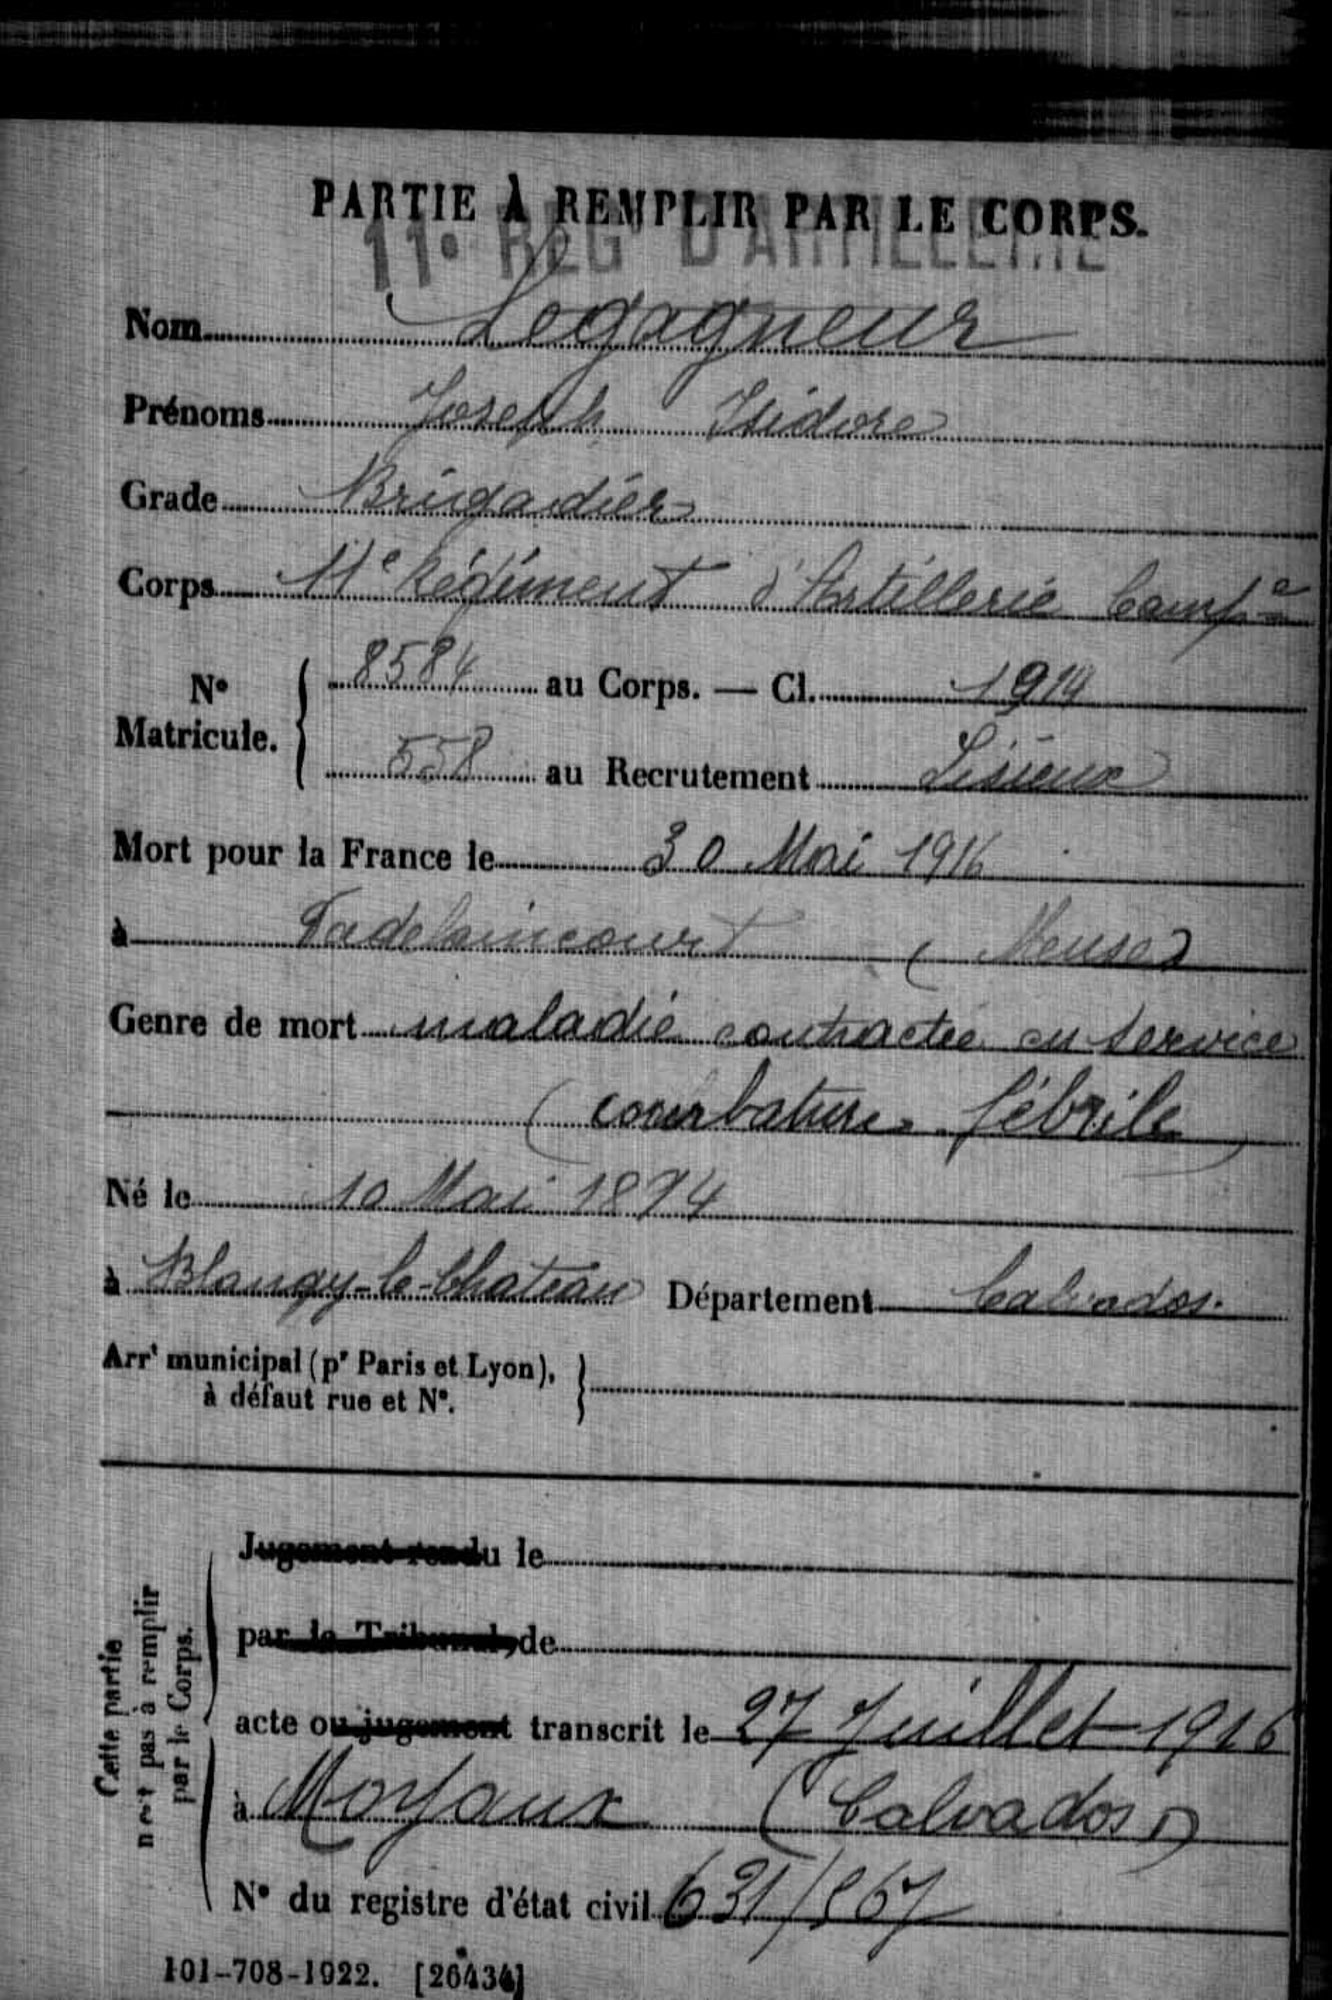 PARTIE À REMPLIR PAR LE CORPS.
11e REGt D'ARTILLERIE
Nom Legagneur
Prénoms Joseph Isidore
Grade Brigadier
Corps 11e Régiment d'Artillerie Campne
No Matricule. { 8584 au Corps. — Cl. 1914
558 au Recrutement Lisieux
Mort pour la France le 30 Mai 1916
à Vadelaincourt (Meuse)
Genre de mort maladie contractée en service
(courbature fébrile)
Né le 10 Mai 1894
à Blangy-le-Chateau Département Calvados.
Arrt municipal (pr Paris et Lyon),
à défaut rue et No. }
Cette partie
n'est pas à remplir
par le Corps.
Jugement rendu le
par le Tribunal de
acte ou jugement transcrit le 27 Juillet 1916
à Moyaux (Calvados)
No du registre d'état civil 631/567
101-708-1922. [26434]